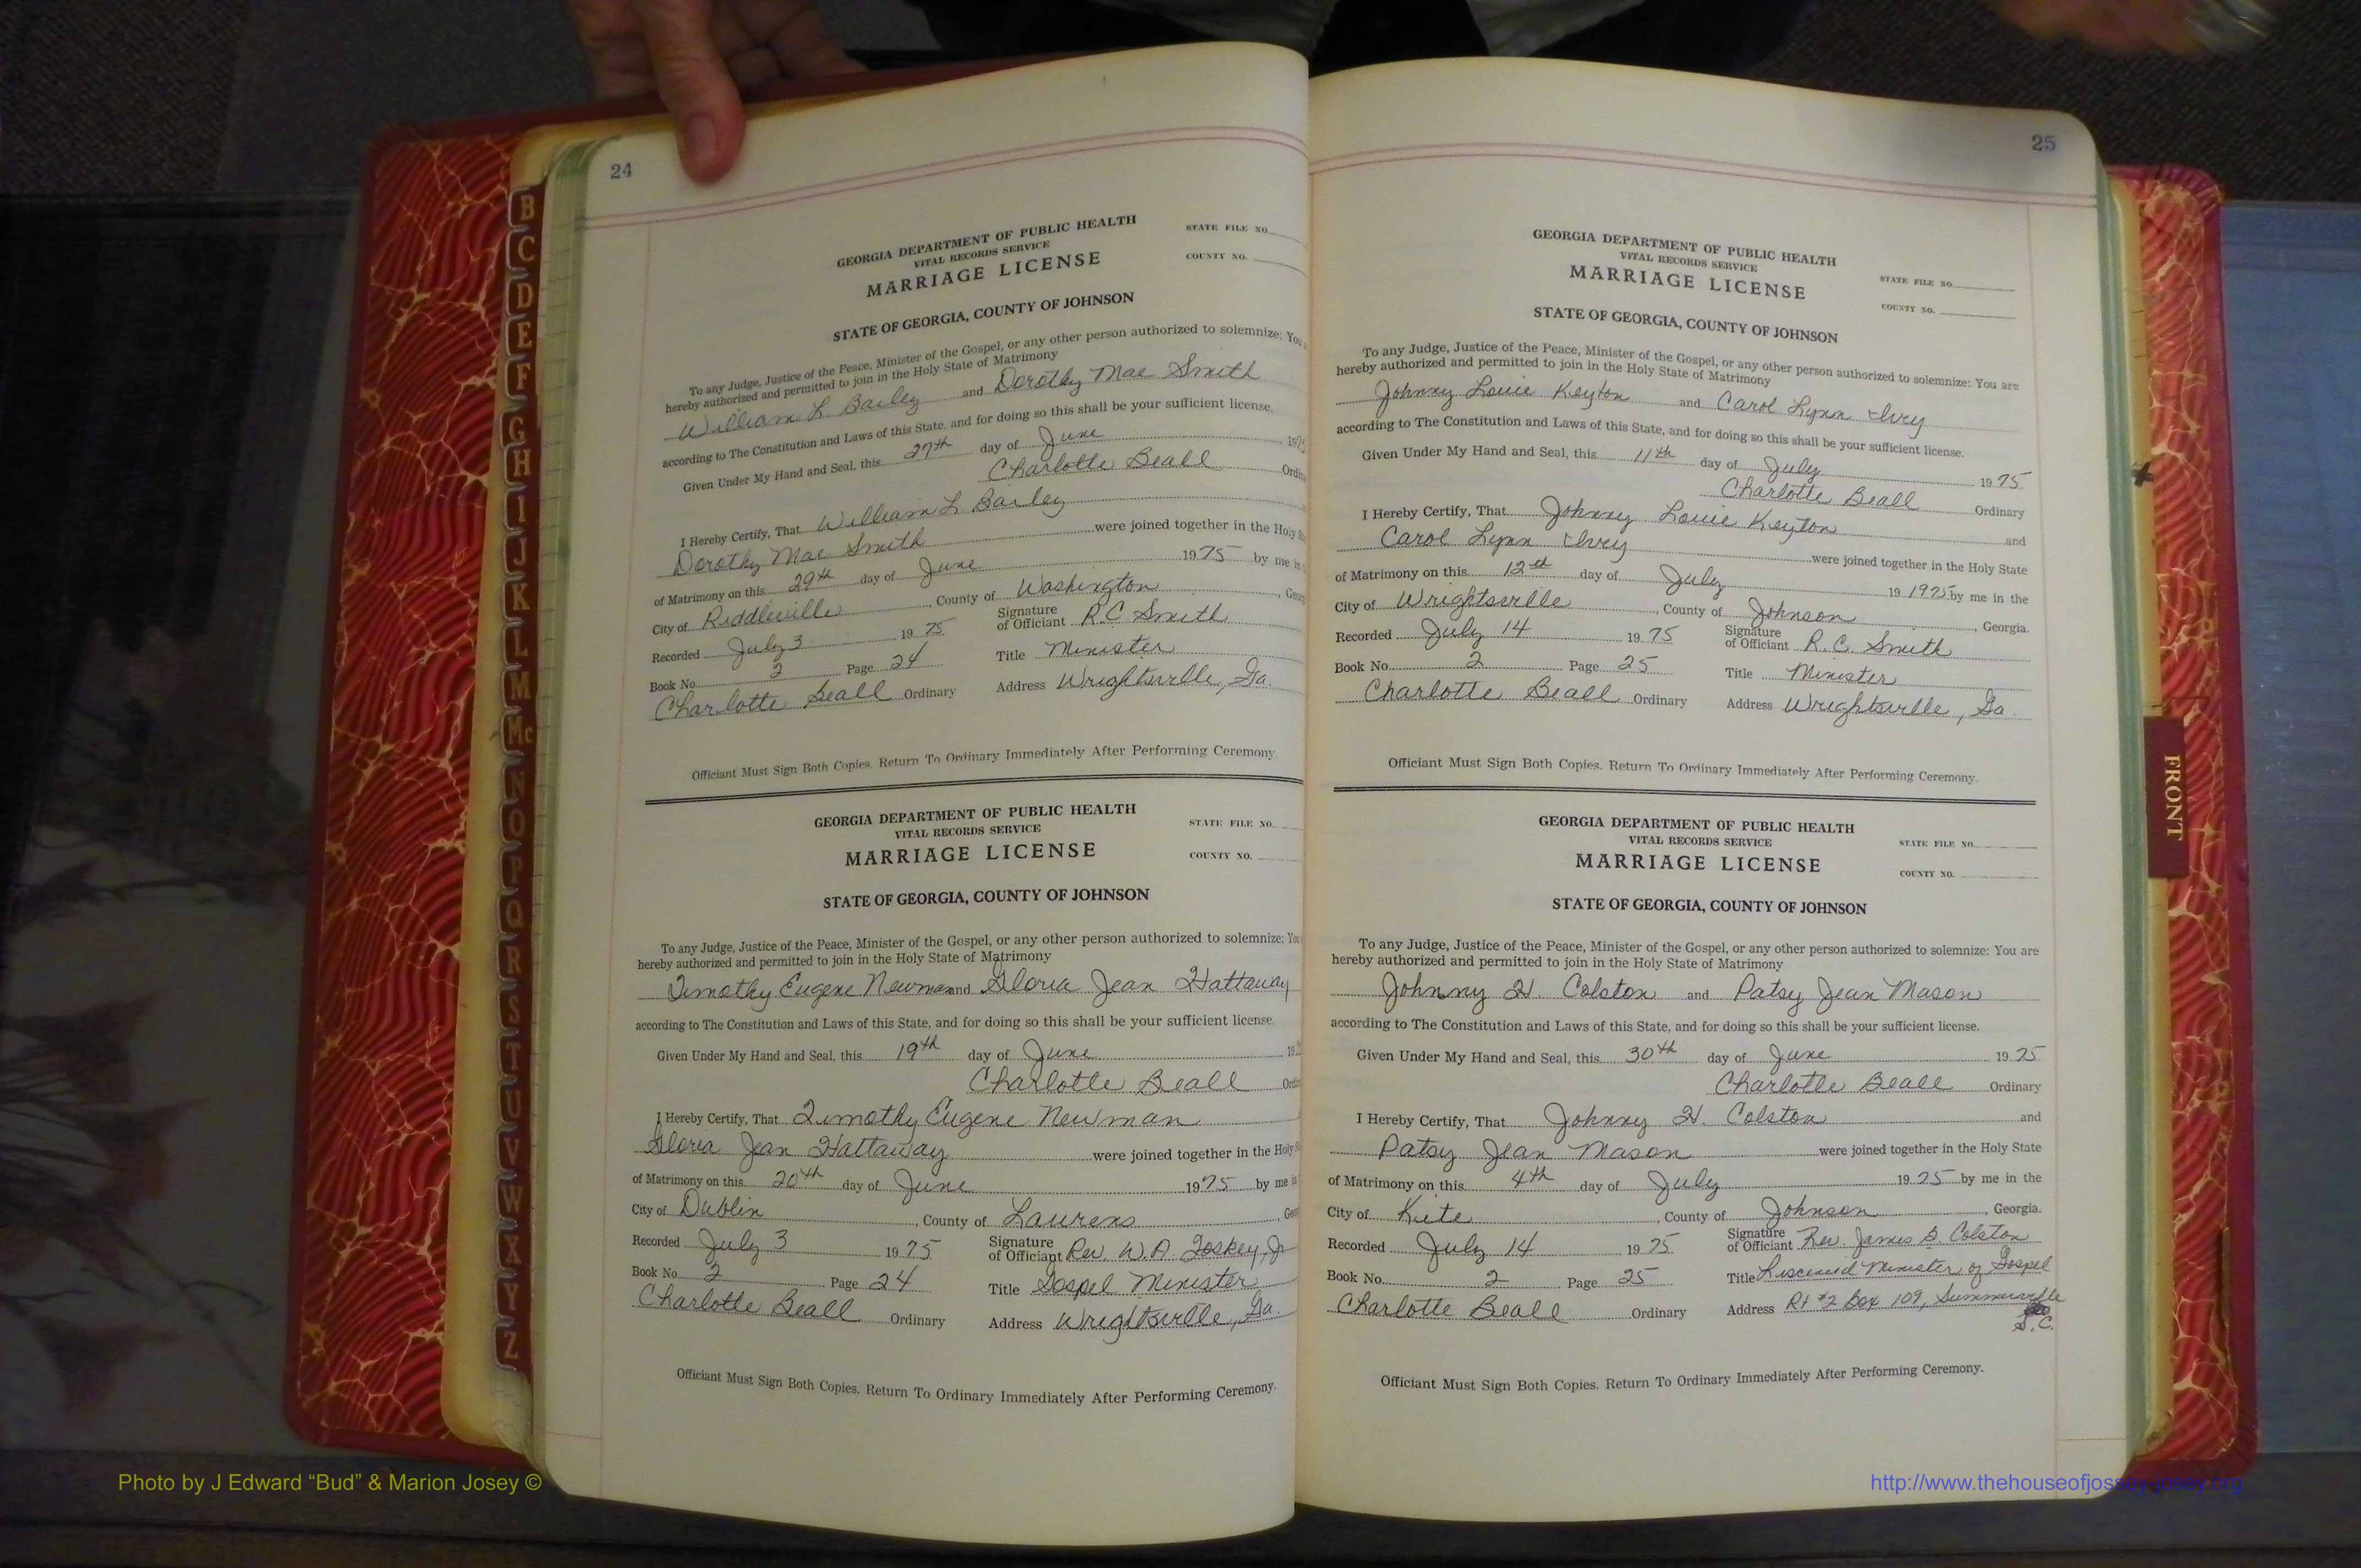 24
GEORGIA DEPARTMENT OF PUBLIC HEALTH
VITAL RECORDS SERVICE
MARRIAGE LICENSE
STATE FILE NO.
COUNTY NO.
STATE OF GEORGIA, COUNTY OF JOHNSON
To any Judge, Justice of the Peace, Minister of the Gospel, or any other person authorized to solemnize: You
hereby authorized and permitted to join in the Holy State of Matrimony
William L. Bailey and Dorothy Mae Smith
according to The Constitution and Laws of this State, and for doing so this shall be your sufficient license.
Given Under My Hand and Seal, this 27th day of June 197
Charlotte Beall Ordin
I Hereby Certify, That William L Bailey
Dorothy Mae Smith were joined together in the Holy
of Matrimony on this 29th day of June 1975 by me in
City of Riddleville, County of Washington, Georg
Recorded July 3 1975 Signature of Officiant R.C. Smith
Book No. 2 Page 24 Title Minister
Charlotte Beall Ordinary Address Wrightsville, Ga.
Officiant Must Sign Both Copies. Return To Ordinary Immediately After Performing Ceremony.
GEORGIA DEPARTMENT OF PUBLIC HEALTH
VITAL RECORDS SERVICE
MARRIAGE LICENSE
STATE FILE NO.
COUNTY NO.
STATE OF GEORGIA, COUNTY OF JOHNSON
To any Judge, Justice of the Peace, Minister of the Gospel, or any other person authorized to solemnize: You
hereby authorized and permitted to join in the Holy State of Matrimony
Timothy Eugene Newman and Gloria Jean Hattaway
according to The Constitution and Laws of this State, and for doing so this shall be your sufficient license.
Given Under My Hand and Seal, this 19th day of June 19
Charlotte Beall Ordi
I Hereby Certify, That Timothy Eugene Newman
Gloria Jean Hattaway were joined together in the Holy S
of Matrimony on this 20th day of June 1975 by me in
City of Dublin, County of Laurens, Geor
Recorded July 3 1975 Signature of Officiant Rev. W.A. Foskey, Jr
Book No. 2 Page 24 Title Gospel Minister
Charlotte Beall Ordinary Address Wrightsville, Ga.
Officiant Must Sign Both Copies. Return To Ordinary Immediately After Performing Ceremony.
25
GEORGIA DEPARTMENT OF PUBLIC HEALTH
VITAL RECORDS SERVICE
MARRIAGE LICENSE
STATE FILE NO.
COUNTY NO.
STATE OF GEORGIA, COUNTY OF JOHNSON
To any Judge, Justice of the Peace, Minister of the Gospel, or any other person authorized to solemnize: You are
hereby authorized and permitted to join in the Holy State of Matrimony
Johnny Louie Keyton and Carol Lynn Ivey
according to The Constitution and Laws of this State, and for doing so this shall be your sufficient license.
Given Under My Hand and Seal, this 11th day of July 1975
Charlotte Beall Ordinary
I Hereby Certify, That Johnny Louie Keyton and
Carol Lynn Ivey were joined together in the Holy State
of Matrimony on this 12th day of July 19 1975 by me in the
City of Wrightsville, County of Johnson, Georgia.
Recorded July 14 1975 Signature of Officiant R. C. Smith
Book No. 2 Page 25 Title Minister
Charlotte Beall Ordinary Address Wrightsville, Ga.
Officiant Must Sign Both Copies. Return To Ordinary Immediately After Performing Ceremony.
GEORGIA DEPARTMENT OF PUBLIC HEALTH
VITAL RECORDS SERVICE
MARRIAGE LICENSE
STATE FILE NO.
COUNTY NO.
STATE OF GEORGIA, COUNTY OF JOHNSON
To any Judge, Justice of the Peace, Minister of the Gospel, or any other person authorized to solemnize: You are
hereby authorized and permitted to join in the Holy State of Matrimony
Johnny H. Colston and Patsy Jean Mason
according to The Constitution and Laws of this State, and for doing so this shall be your sufficient license.
Given Under My Hand and Seal, this 30th day of June 1975
Charlotte Beall Ordinary
I Hereby Certify, That Johnny H. Colston and
Patsy Jean Mason were joined together in the Holy State
of Matrimony on this 4th day of July 1975 by me in the
City of Kite, County of Johnson, Georgia.
Recorded July 14 1975 Signature of Officiant Rev. James B. Colston
Book No. 2 Page 25 Title Liscened Minister of Gospel
Charlotte Beall Ordinary Address Rt #2 Box 109, Summerville
S.C.
Officiant Must Sign Both Copies. Return To Ordinary Immediately After Performing Ceremony.
B
C
D
E
F
G
H
I
J
K
L
M
Mc
N
O
P
Q
R
S
T
U
V
W
X
Y
Z
FRONT
Photo by J Edward “Bud” & Marion Josey ©
http://www.thehouseofjossey-josey.org